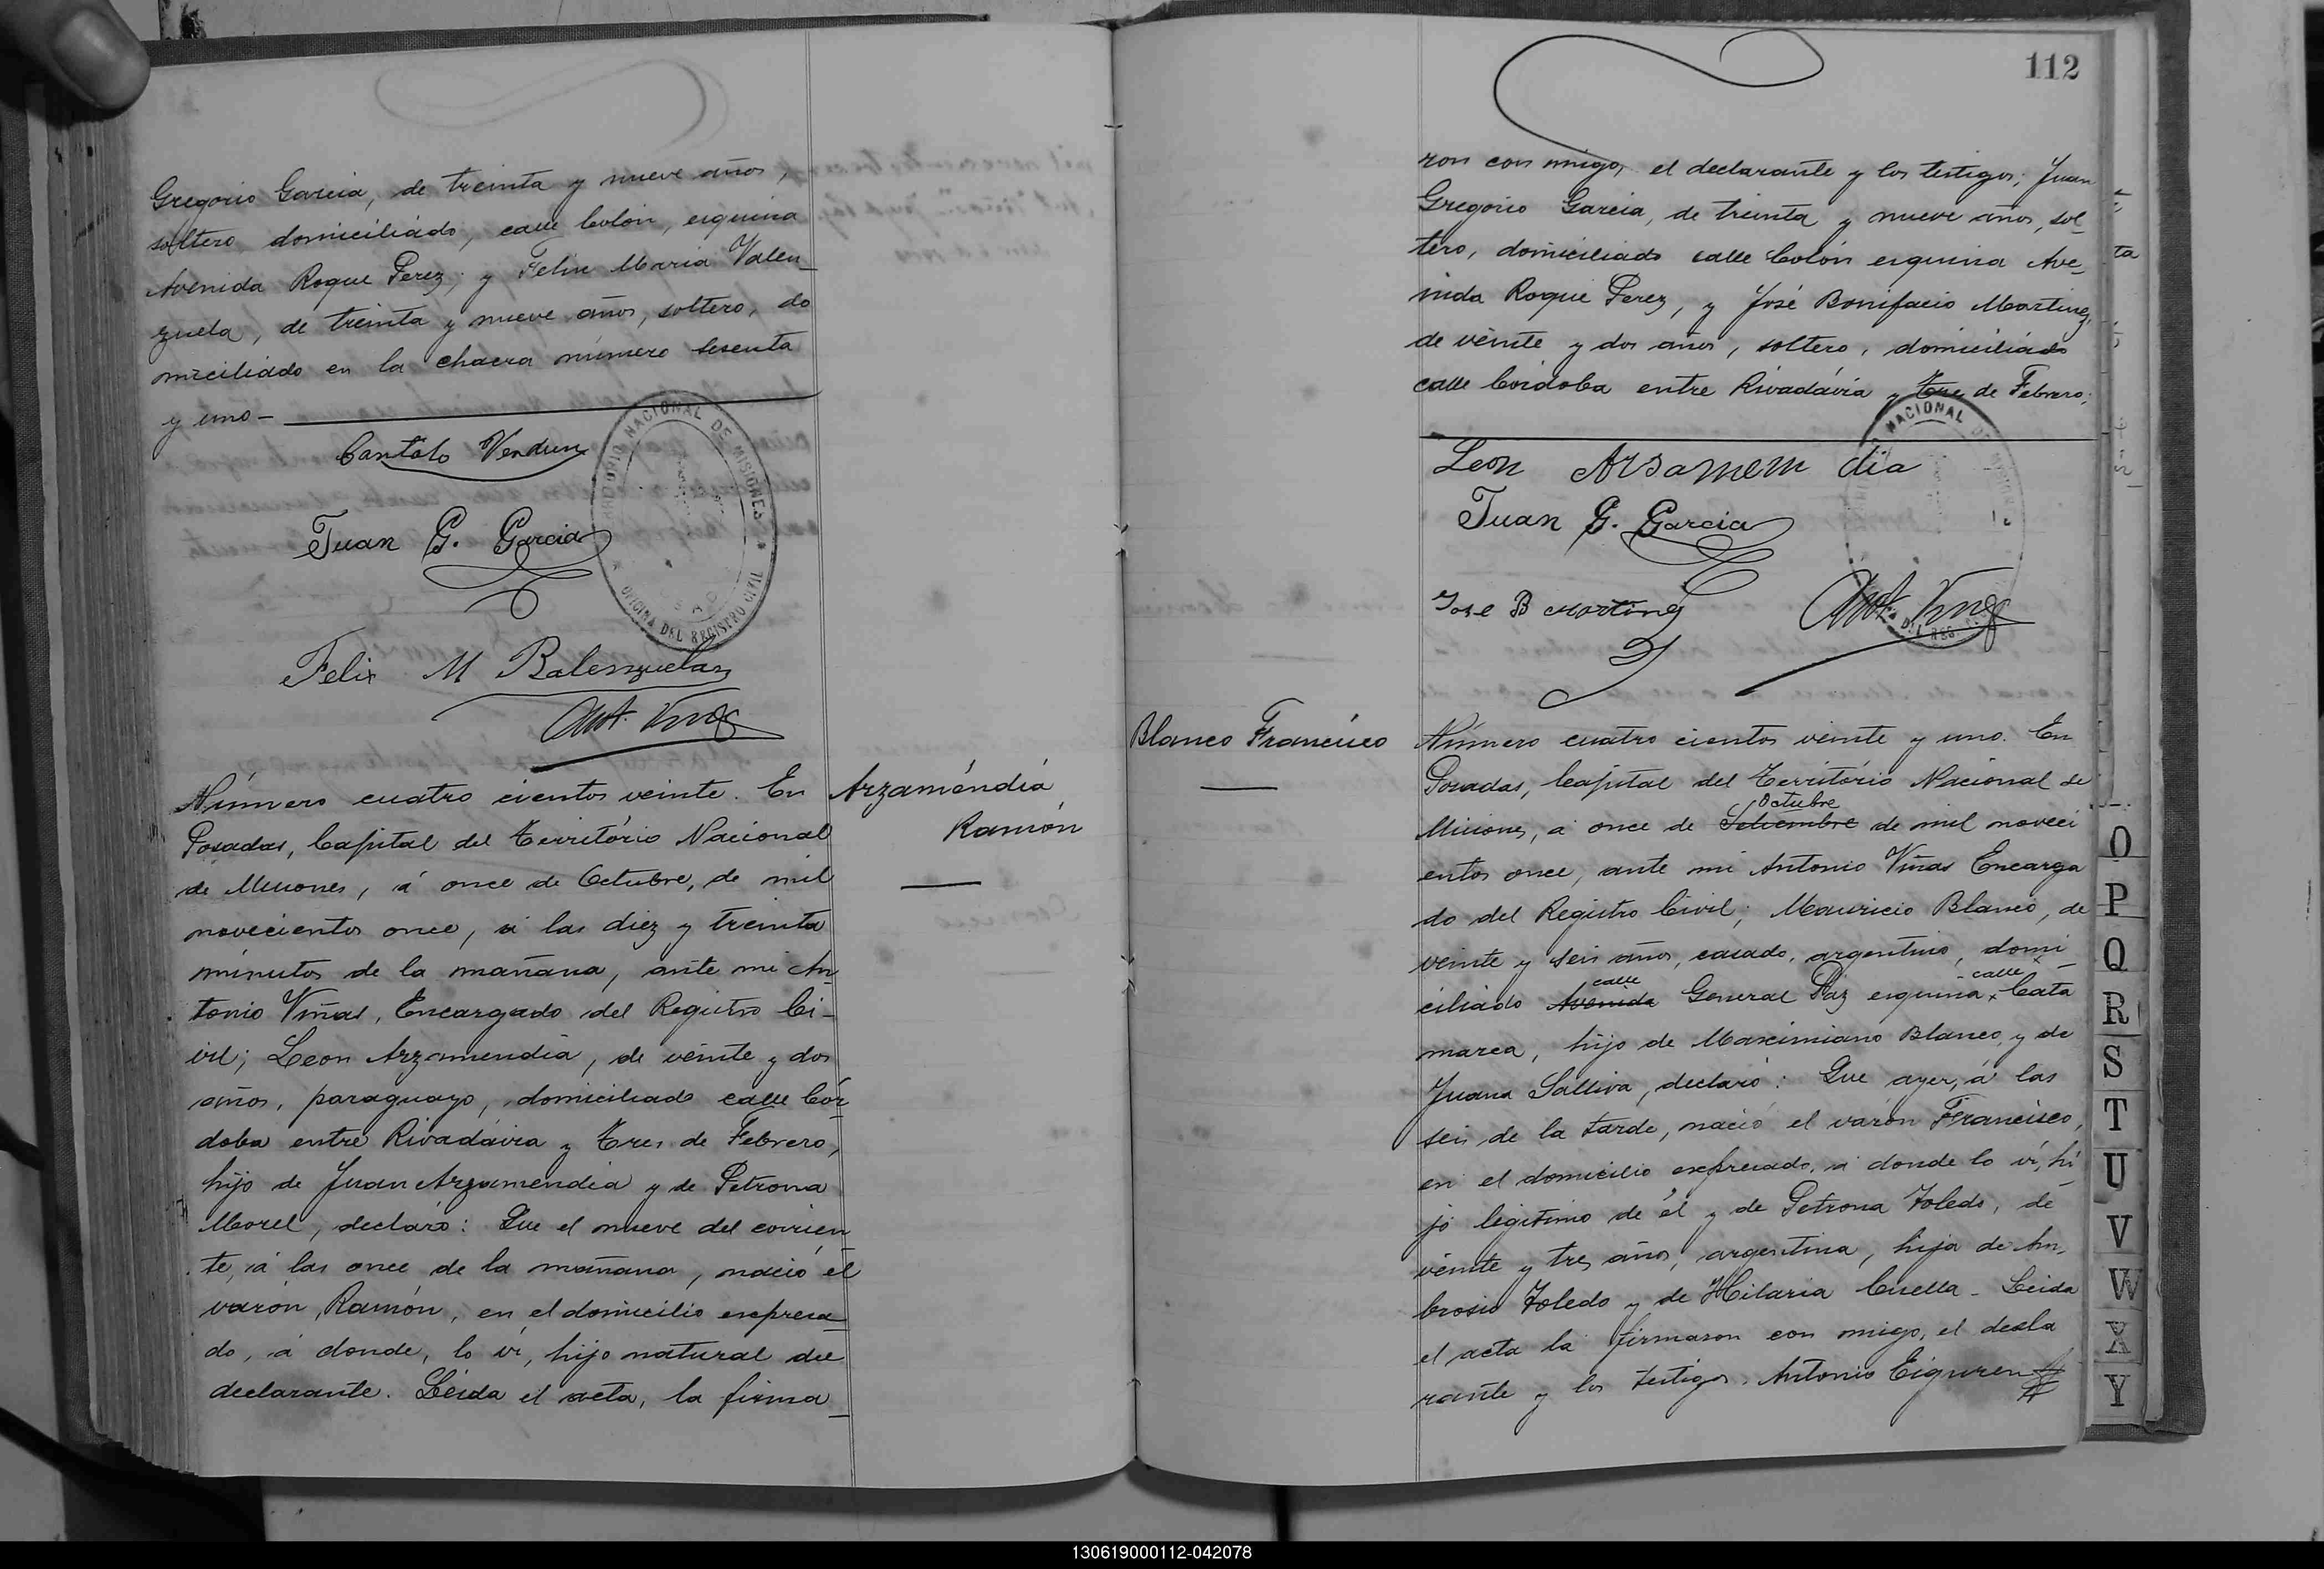 Gregorio Garcia, de treinta y nueve años,
soltero, domiciliado, calle Colón, esquina
Avenida Roque Perez; y Felix Maria Valen_
zuela, de treinta y nueve años, soltero, do
miciliado en la chacra número sesenta
y uno -
Cantalo Verdun
Juan G. Garcia
Felix M Balenzuelas
Ant. Vinas
TERRITORIO NACIONAL DE MISIONES
OFICINA DEL REGISTRO CIVIL
Número cuatro cientos veinte. En
Posadas, Capital del Território Nacional
de Misiones, á once de Octubre, de mil
novecientos once, á las diez y treinta
minutos de la mañana, ante mi An_
tonio Viñas, Encargado del Registro Ci_
vil; Leon Arzamendia, de veinte y dos
años, paraguayo, domiciliado calle Cór
doba entre Rivadávia y Tres de Febrero,
hijo de Juan Arzamendia y de Petrona
Morel, declaró: Que el nueve del corrien
te, á las once de la mañana, nació el
varón, Ramón, en el domicilio expresa_
do, á donde, lo vi, hijo natural del
declarante. Leida el acta, la firma_
Arzaméndia
Ramón
112
ron con migo, el declarante y los testigos; Juan
Gregorio Garcia, de treinta y nueve años, sol_
tero, domiciliado calle Colón esquina Ave_
nida Roque Perez, y José Bonifacio Martinez,
de veinte y dos años, soltero, domiciliado
calle Córdoba entre Rivadávia y Tres de Febrero;
Leon Arsamem dia
Juan G. Garcia
Jose B Martinez
Ant. Vinas
NACIONAL
DEL REG
Blanco Francisco
Número cuatro cientos veinte y uno. En
Posadas, Capital del Território Nacional de
Octubre
Misiones, á once de Setiembre de mil noveci
entos once, ante mi Antonio Viñas Encarga
do del Registro Civil; Mauricio Blanco, de
veinte y seis años, casado, argentino, domi_
calle - calle x
ciliado Avenida General Paz esquina x Cata
marca, hijo de Maximiano Blanco, y de
Juana Salliva, declaró: Que ayer, á las
seis de la tarde, nació el varón Francisco,
en el domicilio expresado, á donde lo vi, hi_
jo legitimo de él y de Petrona Toledo, de
veinte y tres años, argentina, hija de Am_
brosio Toledo y de Hilaria Cuella - Leida
el acta la firmaron con migo, el decla
rante y los testigos. Antonio Eiguren
O
P
Q
R
S
T
U
V
W
X
Y
130619000112-042078